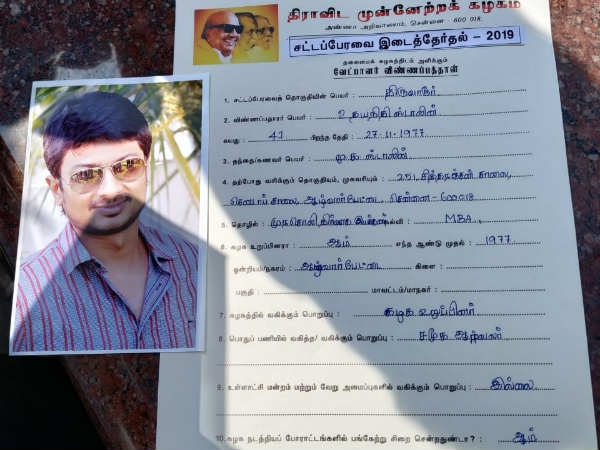 திராவிட முன்னேற்றக் கழகம்
அண்ணா அறிவாலயம், சென்னை - 600 018.
சட்டப்பேரவை இடைத்தேர்தல் - 2019
தலைமைக் கழகத்திடம் அளிக்கும்
வேட்பாளர் விண்ணப்பத்தாள்
1. சட்டப்பேரவைத் தொகுதியின் பெயர் : திருவாரூர்
2. விண்ணப்பதாரர் பெயர் : உதயநிதி ஸ்டாலின்
வயது : 41 பிறந்த தேதி : 27-11-1977
3. தந்தை/கணவர் பெயர் : மு.க ஸ்டாலின்
4. தற்போது வசிக்கும் தொகுதியும், முகவரியும் : 25/, சித்தரஞ்சன் சாலை,
சாலை, ஆழ்வார்பேட்டை, சென்னை-600018
5. தொழில் : முரசொலி, நிர்வாக இயக்குநர் கல்வி : MBA.,
6. கழக உறுப்பினரா : ஆம் எந்த ஆண்டு முதல் : 1977
ஒன்றியம்/நகரம் : ஆழ்வார்பேட்டை கிளை :
பகுதி : மாவட்டம்/மாநகர் :
7. கழகத்தில் வகிக்கும் பொறுப்பு : கழக உறுப்பினர்
8. பொதுப் பணியில் வகித்த/ வகிக்கும் பொறுப்பு : சமூக ஆர்வலர்
9. உள்ளாட்சி மன்றம் மற்றும் வேறு அமைப்புகளில் வகிக்கும் பொறுப்பு : இல்லை
10. கழக நடத்திய போராட்டங்களில் பங்கேற்று சிறை சென்றதுண்டா? : ஆம்